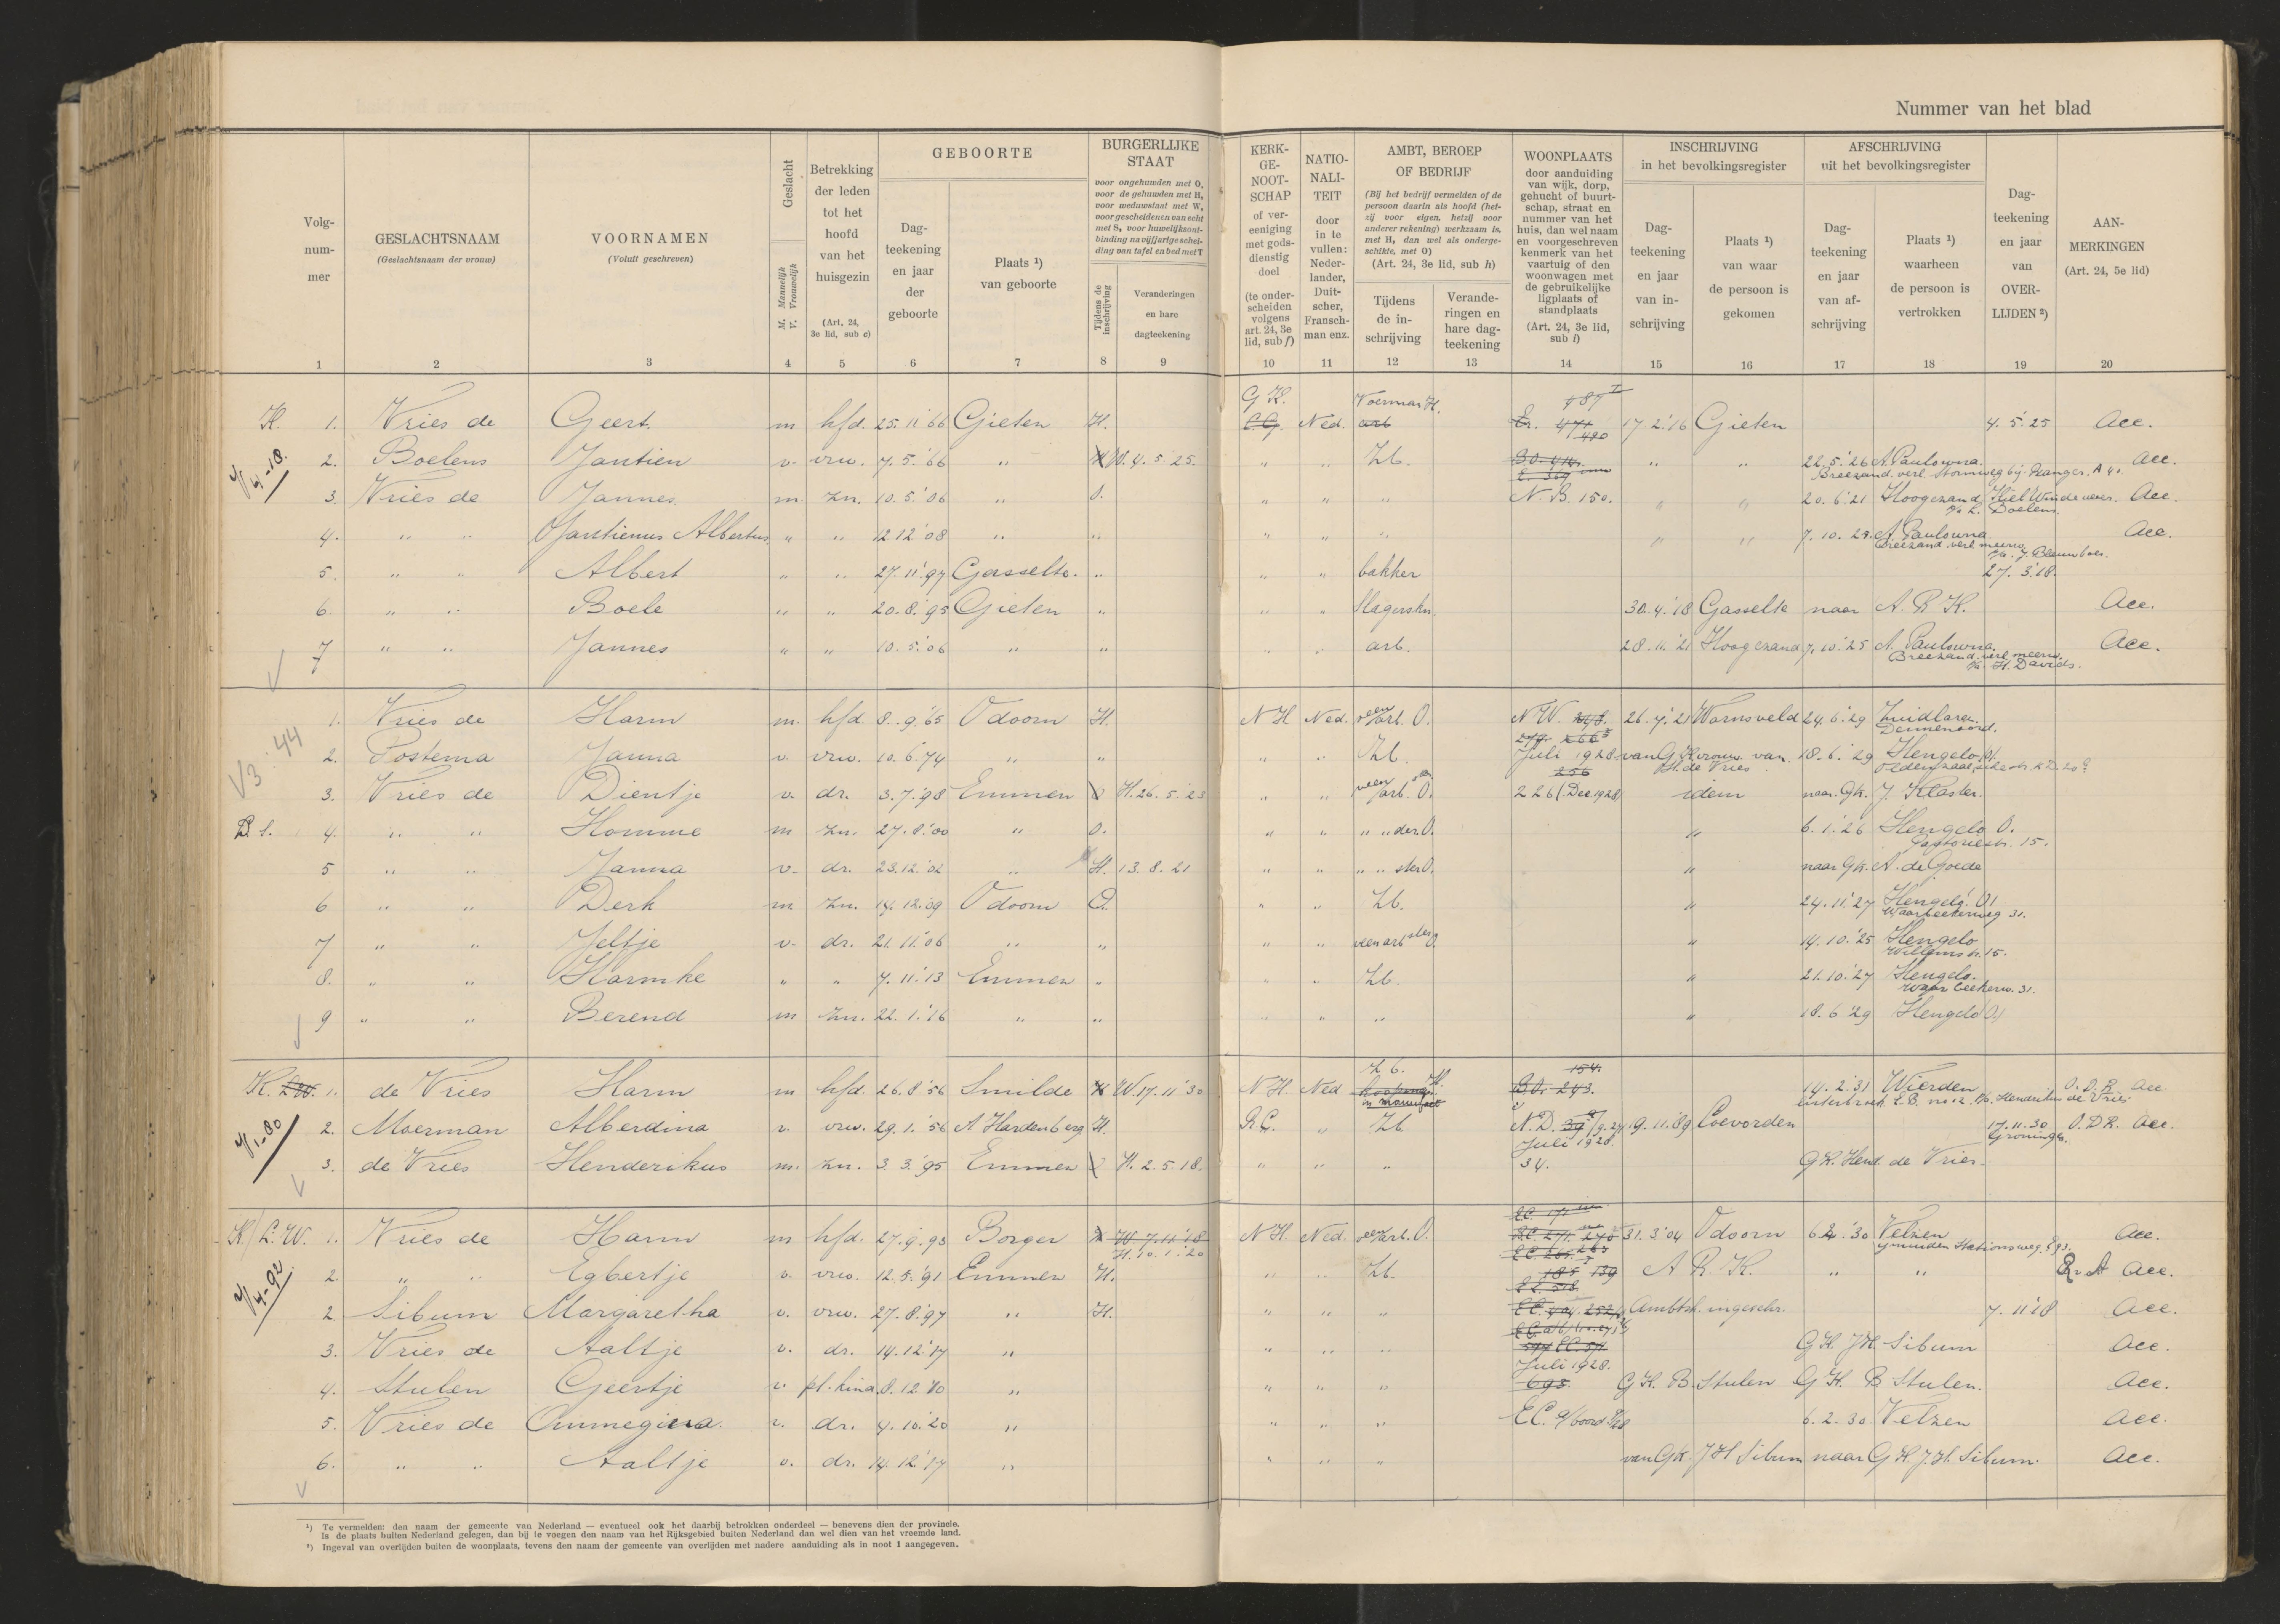 Nummer van het blad
Volgnummer
GESLACHTSNAAM
(Geslachtsnaam der vrouw)
VOORNAMEN
(Voluit geschreven)
Geslacht
M. Mannelijk
V. Vrouwelijk
Betrekking
der leden
tot het
hoofd
van het
huisgezin
(Art. 24,
3e lid, sub c)
GEBOORTE
Dag-
teekening
en jaar
der
geboorte
Plaats ¹)
van geboorte
BURGERLIJKE
STAAT
voor ongehuwden met O,
voor de gehuwden met H,
voor weduwstaat met W,
voor gescheidenen van echt
met S, voor huwelijksont-
binding na vijfjarige schei-
ding van tafel en bed met T
Tijdens de
inschrijving
Veranderingen
en hare
dagteekening
KERK-
GE-
NOOT-
SCHAP
of ver-
eeniging
met gods-
dienstig
doel
(te onder-
scheiden
volgens
art. 24, 3e
lid, sub f)
NATIO-
NALI-
TEIT
door
in te
vullen:
Neder-
lander,
Duit-
scher,
Fransch-
man enz.
AMBT, BEROEP
OF BEDRIJF
(Bij het bedrijf vermelden of de
persoon daarin als hoofd (het-
zij voor eigen, hetzij voor
anderer rekening) werkzaam is,
met H, dan wel als onderge-
schikte, met O)
(Art. 24, 3e lid, sub h)
Tijdens
de in-
schrijving
Verande-
ringen en
hare dag-
teekening
WOONPLAATS
door aanduiding
van wijk, dorp,
gehucht of buurt-
schap, straat en
nummer van het
huis, dan wel naam
en voorgeschreven
kenmerk van het
vaartuig of den
woonwagen met
de gebruikelijke
ligplaats of
standplaats
(Art. 24, 3e lid,
sub i)
INSCHRIJVING
in het bevolkingsregister
Dag-
teekening
en jaar
van in-
schrijving
Plaats ¹)
van waar
de persoon is
gekomen
AFSCHRIJVING
uit het bevolkingsregister
Dag-
teekening
en jaar
van af-
schrijving
Plaats ¹)
waarheen
de persoon is
vertrokken
Dag-
teekening
en jaar
van
OVER-
LIJDEN ²)
AAN-
MERKINGEN
(Art. 24, 5e lid)
1 2 3 4 5 6 7 8 9 10 11 12 13 14 15 16 17 18 19 20
G K. Voerman H.
K. 1. Vries de Geert. m hfd. 25.11.'66 Gieten H. Ned. arb 471 17.2.'16 Gieten 4.5.'25 Acc.
2. Boelens Jantien v. vrw. 7.5.'66 " W. 4.5.25. " " Zb. " " 22.5.'26 A. Paulowna. Acc.
3. Vries de Jannes. m. zn. 10.5.'06 " O. " " " N.B. 150. " " 20.6.'21 Hoogezand Kiel Windeweer. Acc.
Boelens.
4. " " Jantienus Albertus " " 12.12.'08 " " " " " " " A. Paulowna Acc.
5. " " Albert " " 27.11.'97 Gasselte. " " " bakker 27.3.'18.
6. " " Boele " " 20.8.'95 Gieten " " " Slagerskn. 30.4.'18 Gasselte naar A. R. K. Acc.
7 " " Jannes " " 10.5.'06 " " " " arb. 28.11.'21 Hoogezand 7.10.'25 A. Paulowna. Acc.
H. Davids.
V3.44
1. Vries de Harm m. hfd. 8.9.'65 Odoorn H. N H. Ned. veenarb. O. N W. 26.7.'21 Warnsveld 24.6.'29 Zuidlaren
Dennenoord.
2. Postema Janna v. vrw. 10.6.'74 " " " " Zb. Juli 1928 van G.K. vrouw van 18.6.'29 Hengelo O.
H. de Vries
256
3. Vries de Dientje v. dr. 3.7.'98 Emmen H. 26.5.'23 " " veenarb. O. 226 (Dec. 1928) idem naar Gk. J. Klaster.
4. " " Homme m zn. 27.8.'00 " O. " " " " der O. " 6.1.'26 Hengelo O.
5 " " Janna v. dr. 23.12.'02 " H. 13.8.21 " " " " ster O. " naar Gk. A. de Goede
6 " " Derk m. zn. 14.12.09 Odoorn O. " " Zb. " 24.11.'27 Hengelo. O
Waarbeekerweg 31.
7 " " Jeltje v. dr. 21.11.'06 " " " " veenarbster O. " 14.10.'25 Hengelo
Willemstr. 15.
8. " " Harmke " " 7.11.'13 Emmen " " " Zb. " 21.10.'27 Hengelo.
Waarbeekerw. 31.
9 " " Berend m zn. 22.1.'16 " " " " " " 18.6.'29 Hengelo (O.)
Z b. 154.
K. 1. de Vries Harm m hfd. 26.8.'56 Smilde W. 17.11.'30 N H. Ned B.O. 243. 14.2.'31 Wierden O.D.R. Acc.
Hendrikus de Vries
V/1-80
2. Moerman Alberdina v. vrw. 29.1.'56 A Hardenberg H. R C. " Zb. N. D. 19.11.'89 Coevorden 17.11.30 O.D R. Acc.
Juli 1928. Groningen.
3. de Vries Henderikus m. zn. 3.3.'95 Emmen H. 2.5.18. " " " 34. G K. Hend. de Vries.
K./L.W. 1. Vries de Harm m hfd. 27.9.93 Borger W. 7.11.'18 N H. Ned. veenarb. O. 31.3.'04 Odoorn 6.2.'30 Velzen Acc.
H. 10.1.'20 IJmuiden Stationsweg
V/4-92
2. " " Egbertje v. vrw. 12.5.'91 Emmen H. " " Zb. A R. K. " " Acc.
2 Sibum Margaretha v. vrw. 27.8.'97 " H. " " " Ambtsh. ingeschr. 7.11.'18 Acc.
3. Vries de Aaltje v. dr. 14.12.'17 " " " " G K. JH Sibum Acc.
Juli 1928.
4. Stulen Geertje v. pl. kind 8.12.'10 " " " " 693. G K. B. Stulen G K. B Stulen. Acc.
5. Vries de v. dr. 4.10.'20 " " " " E C. 6.2.30 Velzen Acc.
6. " " Aaltje v. dr. 14.12.'17 " " " " van Gk. J H Sibum naar G K J. H. Sibum. Acc.
¹) Te vermelden: den naam der gemeente van Nederland — eventueel ook het daarbij betrokken onderdeel — benevens dien der provincie.
Is de plaats buiten Nederland gelegen, dan bij te voegen den naam van het Rijksgebied buiten Nederland dan wel dien van het vreemde land.
²) Ingeval van overlijden buiten de woonplaats, tevens den naam der gemeente van overlijden met nadere aanduiding als in noot 1 aangegeven.